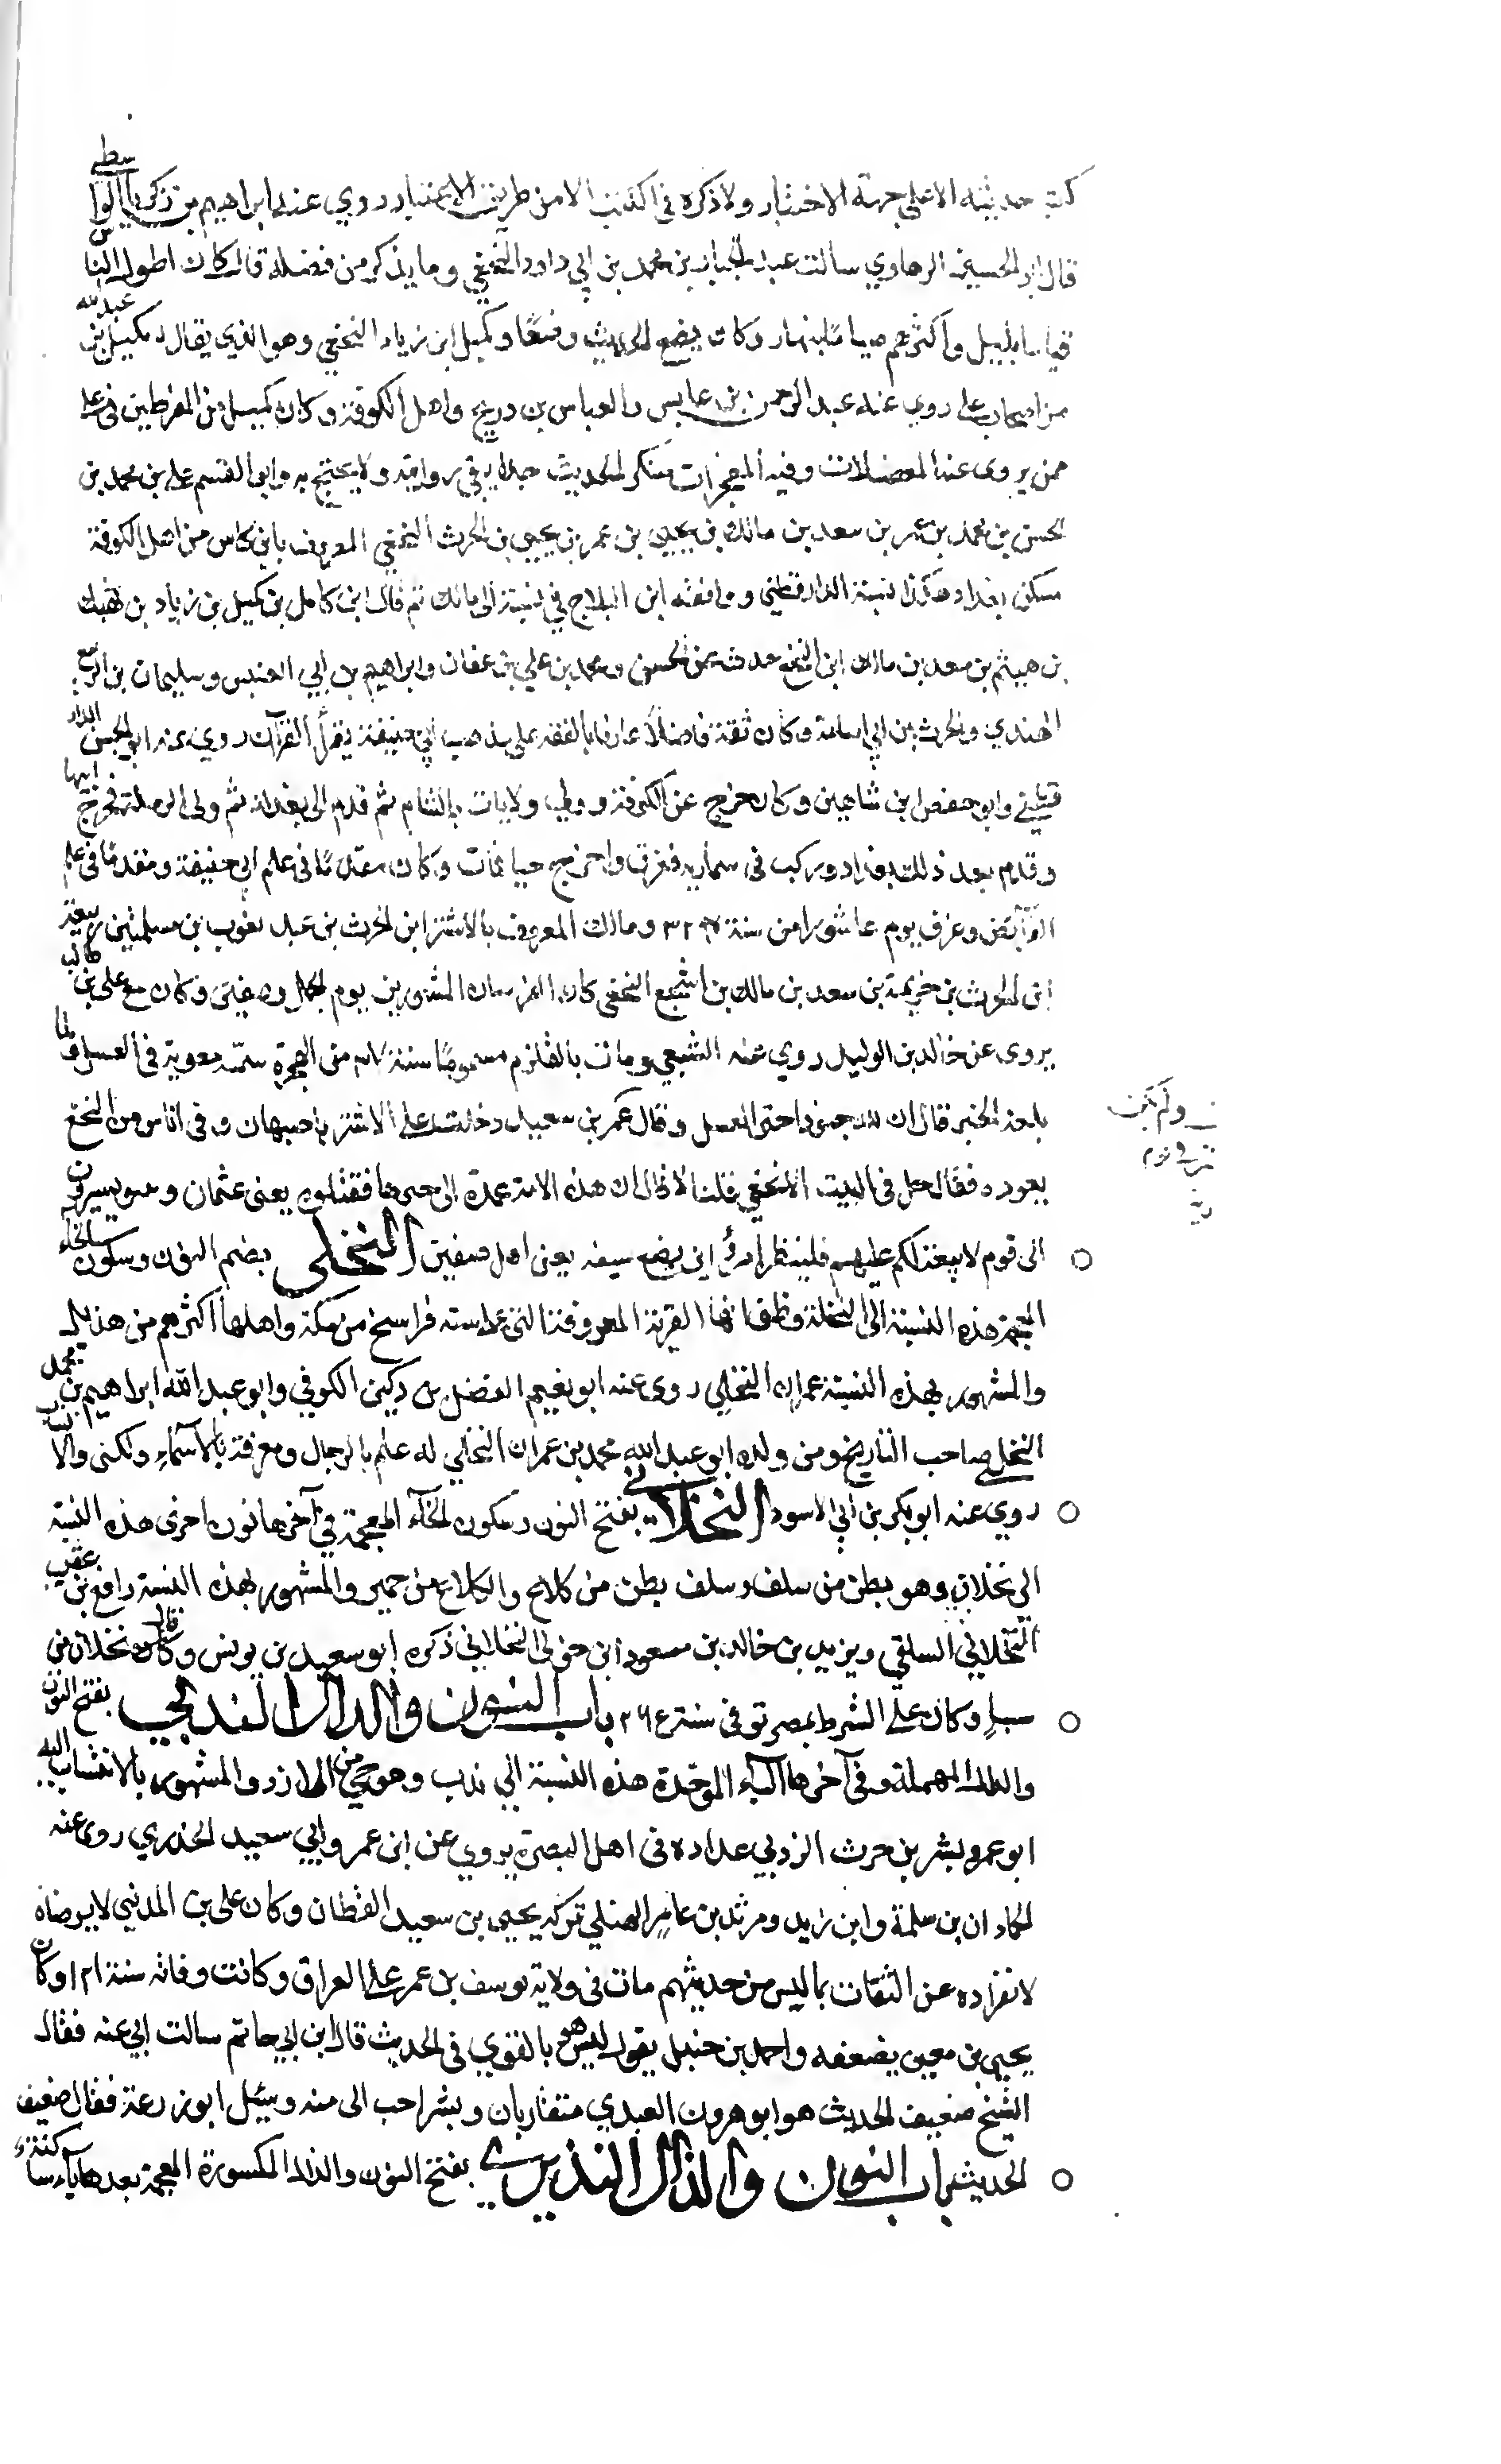 كتب حديثه الا على جهة الاختبار ولا ذكره في الكتب الا من طريق الاعتبار روي عنه ابراهيم بن زكريا الواسطي
قال ابو الحسين الرهاوي سالت عبد الجبار بن محمد بن ابي داود النخعي وما يذكر من فضله قال كان اطول الناس
قياما بليل واكثرهم صياما بنهار وكان يضع الحديث وضعا وكميل ابن زياد النخعي وهو الذي يقال له كميل بن عبد الله
من اصحاب علي روي عنه عبد الرحمن بن عابس والعباس بن دريح واهل الكوفة وكان كميل من المفرطين في علي
ممن يروى عنه المعضلات وفيه المعجزات منكر الحديث جدا يتقي روايته ولا يحتج به وابو القسم علي بن محمد بن
الحسن بن محمد بن عمر بن سعد بن مالك بن يحيى بن عمر بن يحيى بن الحرث النخعي المعروف بابن كاس من اهل الكوفة
سكن بغداد هكذا نسبه الدارقطني ووافقه ابن الثلاج في نسبته الى مالك ثم قال ابن كامل بن كميل بن زياد بن نهيك
بن هيثم بن سعد بن مالك ابن النخع حدث عن الحسن ومحمد بن علي بن عفان وابراهيم بن ابي العنبس وسليمان بن الربيع
الهندي والحرث بن ابي اسامة وكان ثقة فاضلا عارفا بالفقه على مذهب ابي حنيفة يقرأ القرآن روي عنه ابو الحسن الدار
قطني وابو حفص ابن شاهين وكان خرج عن الكوفة وولي ولايات بالشام ثم قدم الى بغداد ثم ولي الرملة فخرج اليها
وقدم بعد ذلك بغداد وركب في سمارية فغرق واخرج حيا فمات وكان مقدما في علم ابي حنيفة ومقدما في علم
الفرائض وغرق يوم عاشورا من سنة ٣٢٤ ومالك المعروف بالاشتر ابن الحرث بن عبد يغوث بن مسلمة بن ربيعة
ابن الحرث بن خزيمة بن سعد بن مالك بن اشجع النخعي كان الفرسان المشهورين يوم الجمل وصفين وكان مع علي بن طالب
يروى عن خالد بن الوليد روي عنه الشعبي ومات بالقلزم مسموما سنة من الهجرة سمه معوية في العسل ولما
بلغه الخبر قال ان لله جنودا حتى العسل وقال عمر بن سعيد دخلت على الاشتر باصبهان وفي اناس من النخع
يعوده فقال هل في البيت الا نخعي قلنا لا قال ان هذه الامة عمدة الى خيرها فقتلوه يعني عثمان وسويسيرون
الى قوم لا بيعة لكم عليهم فلينظر امرؤ اين يضع سيفه يعني اهل صفين النخلي بضم النون وسكون الخاء
المعجمة هذه النسبة الى النخلة وظني انها القرية المعروفة التي على ستة فراسخ من مكة واهلها اكثرهم من هذيل
والمشهور بهذه النسبة عمران النخلي روى عنه ابو نعيم الفضل بن دكين الكوفي وابو عبد الله ابراهيم بن محمد
النخلي صاحب التاريخ ومن ولده ابو عبد الله محمد بن عمران النخلي له علم بالرجال ومعرفة بالاسماء ولكنى والانساب
روي عنه ابو بكر بن ابي الاسود النخلاني بفتح النون وسكون الخاء المعجمة في آخرها نون اخرى هذه النسبة
الى نخلان وهو بطن من سلف وسلف بطن من كلاع والكلاع من حمير والمشهور بهذه النسبة رافع بن عقيب
النخلاني السلفي ويزيد بن خالد بن مسعود ابن خولى النخلاني ذكره ابو سعيد بن يونس وقال كان بنو نخلان من
سبا وكان على الشرط بمصر توفى سنة ٢٦٤ باب النون والدال الندبي بفتح النون
والدال المهملة وفى آخرها الباء الموحدة هذه النسبة الى ندب وهو حي من الازد والمشهور بالانتساب اليه
ابو عمرو بشر بن حرث الندبي عداده فى اهل البصرة يروي عن ابن عمر وابي سعيد الخدري روى عنه
الحمادان بن سلمة وابن زايد ومرثد بن عامر الهنائي تركه يحيى بن سعيد القطان وكان على بن المدني لا يرضاه
لانفراده عن الثقات بما ليس من حديثهم مات فى ولاية يوسف بن عمر على العراق وكانت وفاته سنة ١٢١ وكان
يحيى بن معين يضعفه واحمد بن حنبل يقول ليس هو بالقوي فى الحديث قال ابن ابي حاتم سالت ابي عنه فقال
الشيخ ضعيف الحديث هو ابو هرون العبدي متقاربان وبشر احب الى منه وسئل ابو زرعة فقال ضعيف
الحديث باب النون والذال النذيري بفتح النون والذال المكسورة المعجمة بعدها ياء ساكنة
ولم يكن